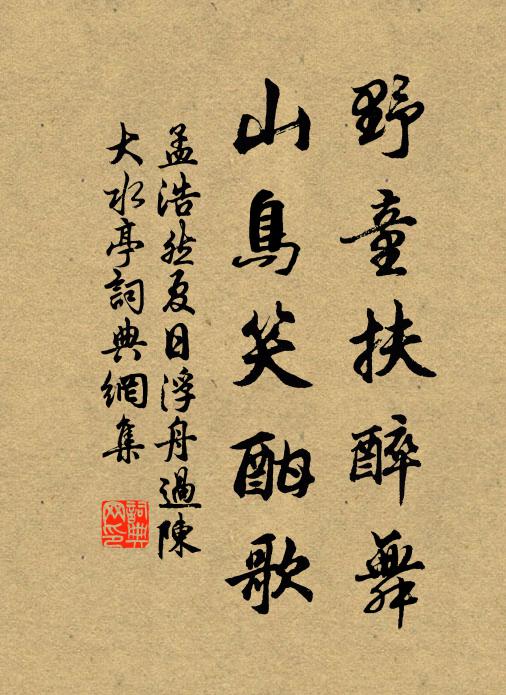 野童扶醉舞
山鳥笑酣歌
孟浩然夏日浮舟過陳
大水亭詞典網集
詞典
网印